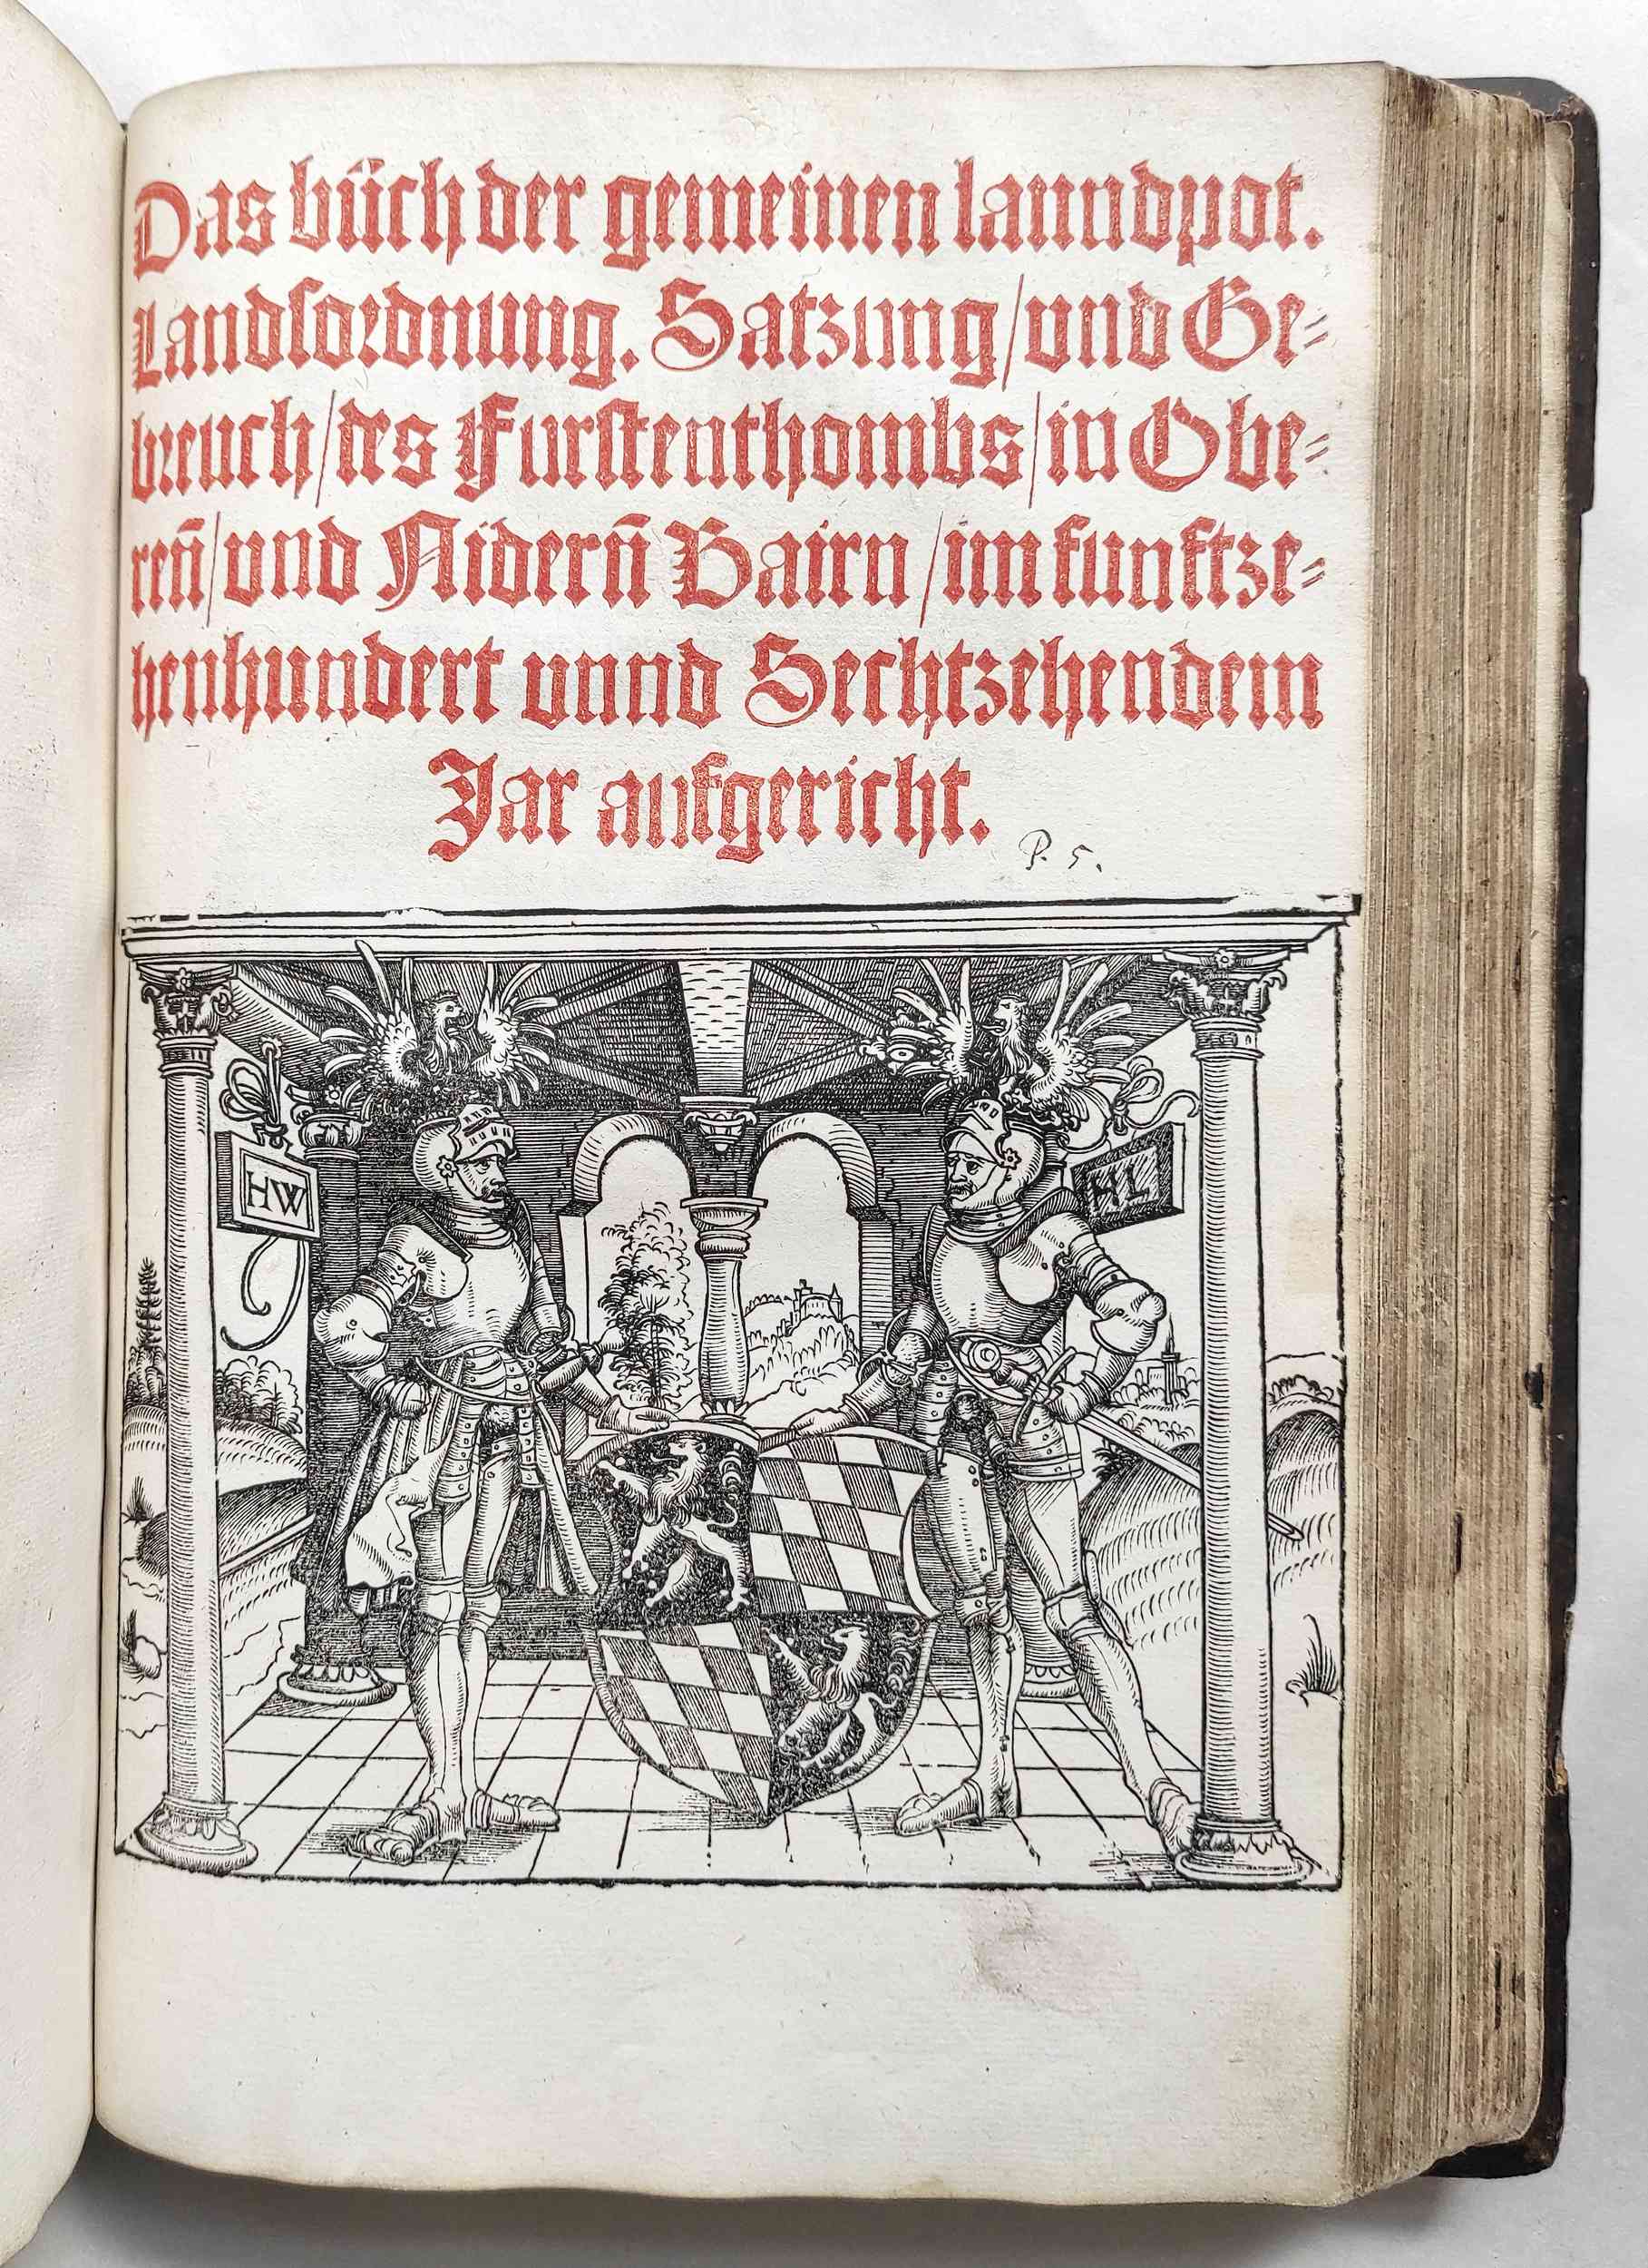 Das büch der gemeinen lanndpot.
Landsordnung. Satzung/und Ge⸗
breuch/des Furstenthombs/in Obe⸗
ren̄/und Nidern̄ Bairn/im funftze⸗
henhundert unnd Sechtzehendem
Jar aufgericht.
P. 5.
HW
HL